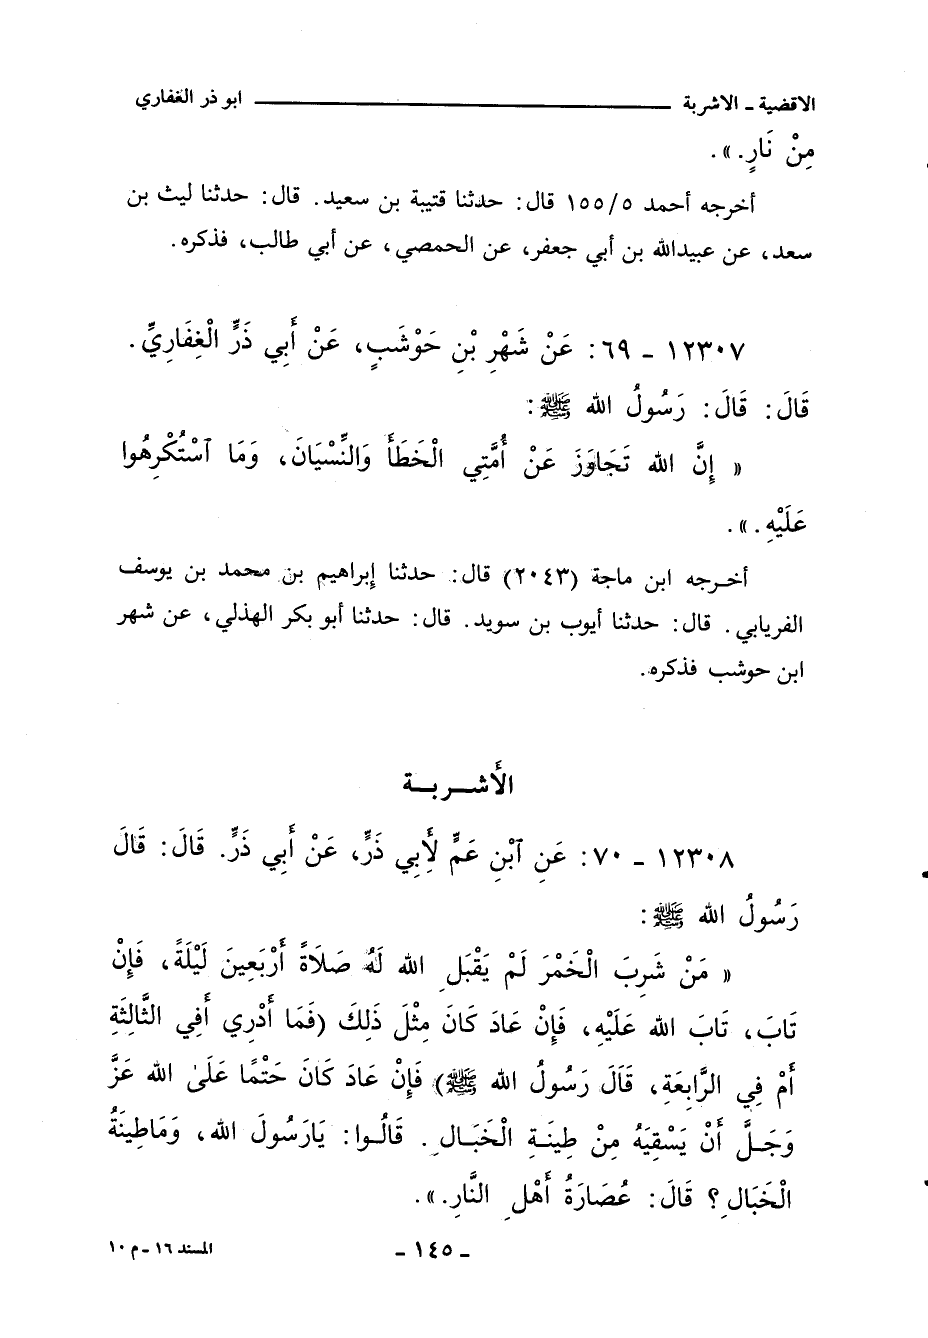 الاقضية - الاشربة ابو ذر الغفاري
مِنْ نَارٍ.».
أخرجه أحمد ١٥٥/٥ قال: حدثنا قتيبة بن سعيد. قال: حدثنا ليث بن
سعد، عن عبيدالله بن أبي جعفر، عن الحمصي، عن أبي طالب، فذكره.
١٢٣٠٧ - ٦٩: عَنْ شَهْرِ بْنِ حَوْشَبٍ، عَنْ أَبِي ذَرٍّ الْغِفَارِيِّ.
قَالَ: قَالَ: رَسُولُ الله ﷺ:
« إِنَّ الله تَجَاوَزَ عَنْ أُمَّتِي الْخَطَأَ وَالنِّسْيَانَ، وَمَا ٱسْتُكْرِهُوا
عَلَيْهِ.».
أخـرجه ابن ماجة (٢٠٤٣) قال: حدثنا إبراهيم بن محمد بن يوسف
الفريابي. قال: حدثنا أيوب بن سويد. قال: حدثنا أبو بكر الهذلي، عن شهر
ابن حوشب فذكره.
الأشـربـة
١٢٣٠٨ - ٧٠: عَنِ ٱبْنِ عَمٍّ لِأَبِي ذَرٍّ، عَنْ أَبِي ذَرٍّ. قَالَ: قَالَ
رَسُولُ الله ﷺ:
« مَنْ شَرِبَ الْخَمْرَ لَمْ يَقْبَلِ الله لَهُ صَلَاةً أَرْبَعِينَ لَيْلَةً، فَإِنْ
تَابَ، تَابَ الله عَلَيْهِ، فَإِنْ عَادَ كَانَ مِثْلَ ذَلِكَ (فَمَا أَدْرِي أَفِي الثَّالِثَةِ
أَمْ فِي الرَّابِعَةِ، قَالَ رَسُولُ الله ﷺ) فَإِنْ عَادَ كَانَ حَتْمًا عَلَىٰ الله عَزَّ
وَجَـلَّ أَنْ يَسْقِيَهُ مِنْ طِينَـةِ الْخَبَـالِ. قَالُـوا: يَارَسُولَ الله، وَمَاطِينَةُ
الْخَبَالِ؟ قَالَ: عُصَارَةُ أَهْلِ النَّارِ.».
- ١٤٥ -
المسند ١٦ - م ١٠